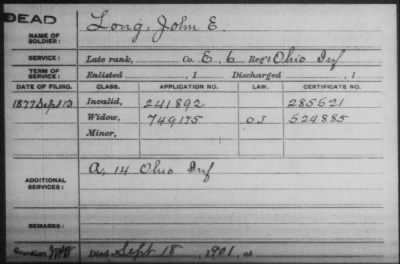 DEAD
NAME OF SOLDIER: Long, John E.
SERVICE: Late rank, Co. E, 6 Reg't Ohio Inf
TERM OF SERVICE: Enlisted , 1 Discharged , 1
DATE OF FILING. CLASS. APPLICATION NO. LAW. CERTIFICATE NO.
1877 Sept 13 Invalid, 241892 285621
Widow, 749175 OJ 524885
Minor,
ADDITIONAL SERVICES: A, 14 Ohio Inf
REMARKS:
Died Sept 18, 1901, at